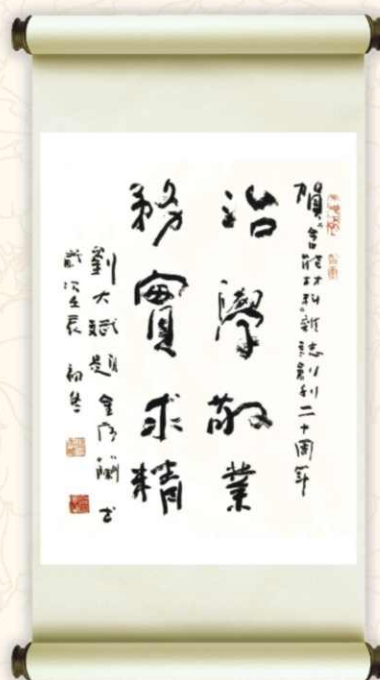 賀《功能材料》雜誌創刊二十周年
治學敬業
務實求精
劉大斌題 書
歲次壬辰初冬